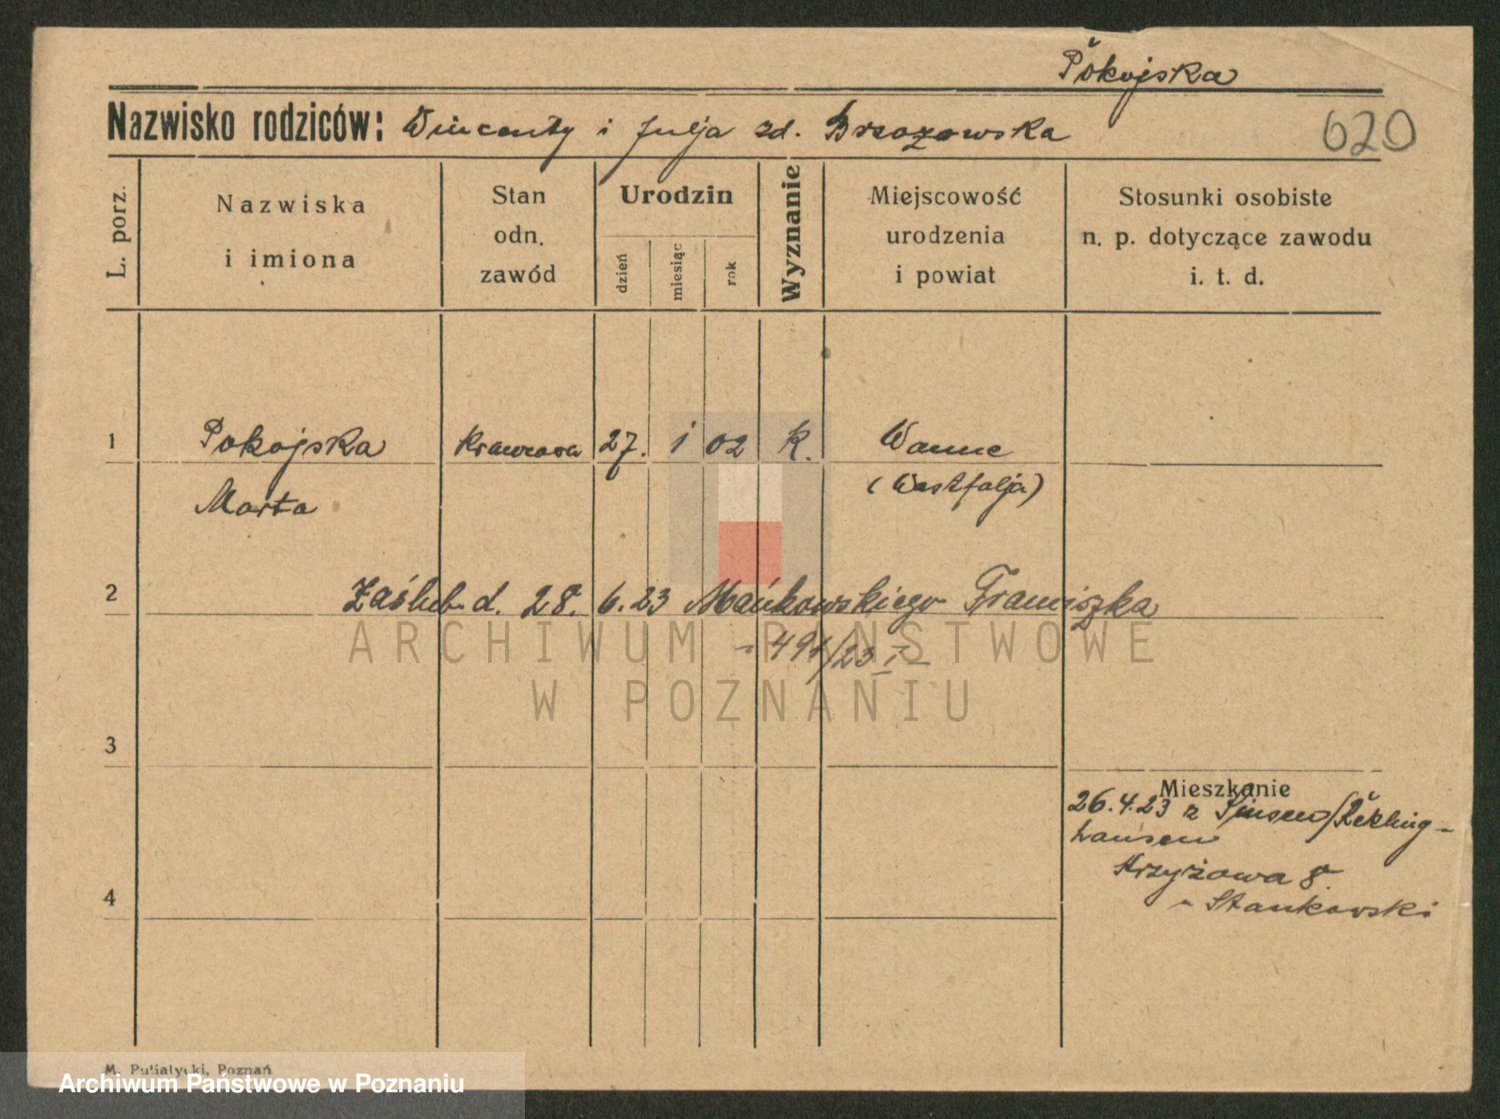 Pokojska
Nazwisko rodziców: Wincenty i Julja zd. Brzozowska
620
L. porz.
Nazwiska
i imiona
Stan
odn.
zawód
Urodzin
dzień
miesiąc
rok
Wyznanie
Miejscowość
urodzenia
i powiat
Stosunki osobiste
n. p. dotyczące zawodu
i. t. d.
1 Pokojska krawcowa 27. 1 02 k. Wanne
Marta (Westfalja)
2 Zaślub. d. 28. 6. 23 Mańkowskiego Franciszka
- 491/23 I -
ARCHIWUM PAŃSTWOWE
W POZNANIU
3
Mieszkanie
26.4.23 z Sinsen/Rekling-
hausen
4 Krzyżowa 8.
Stankowski
M. Putiatycki, Poznań
Archiwum Państwowe w Poznaniu